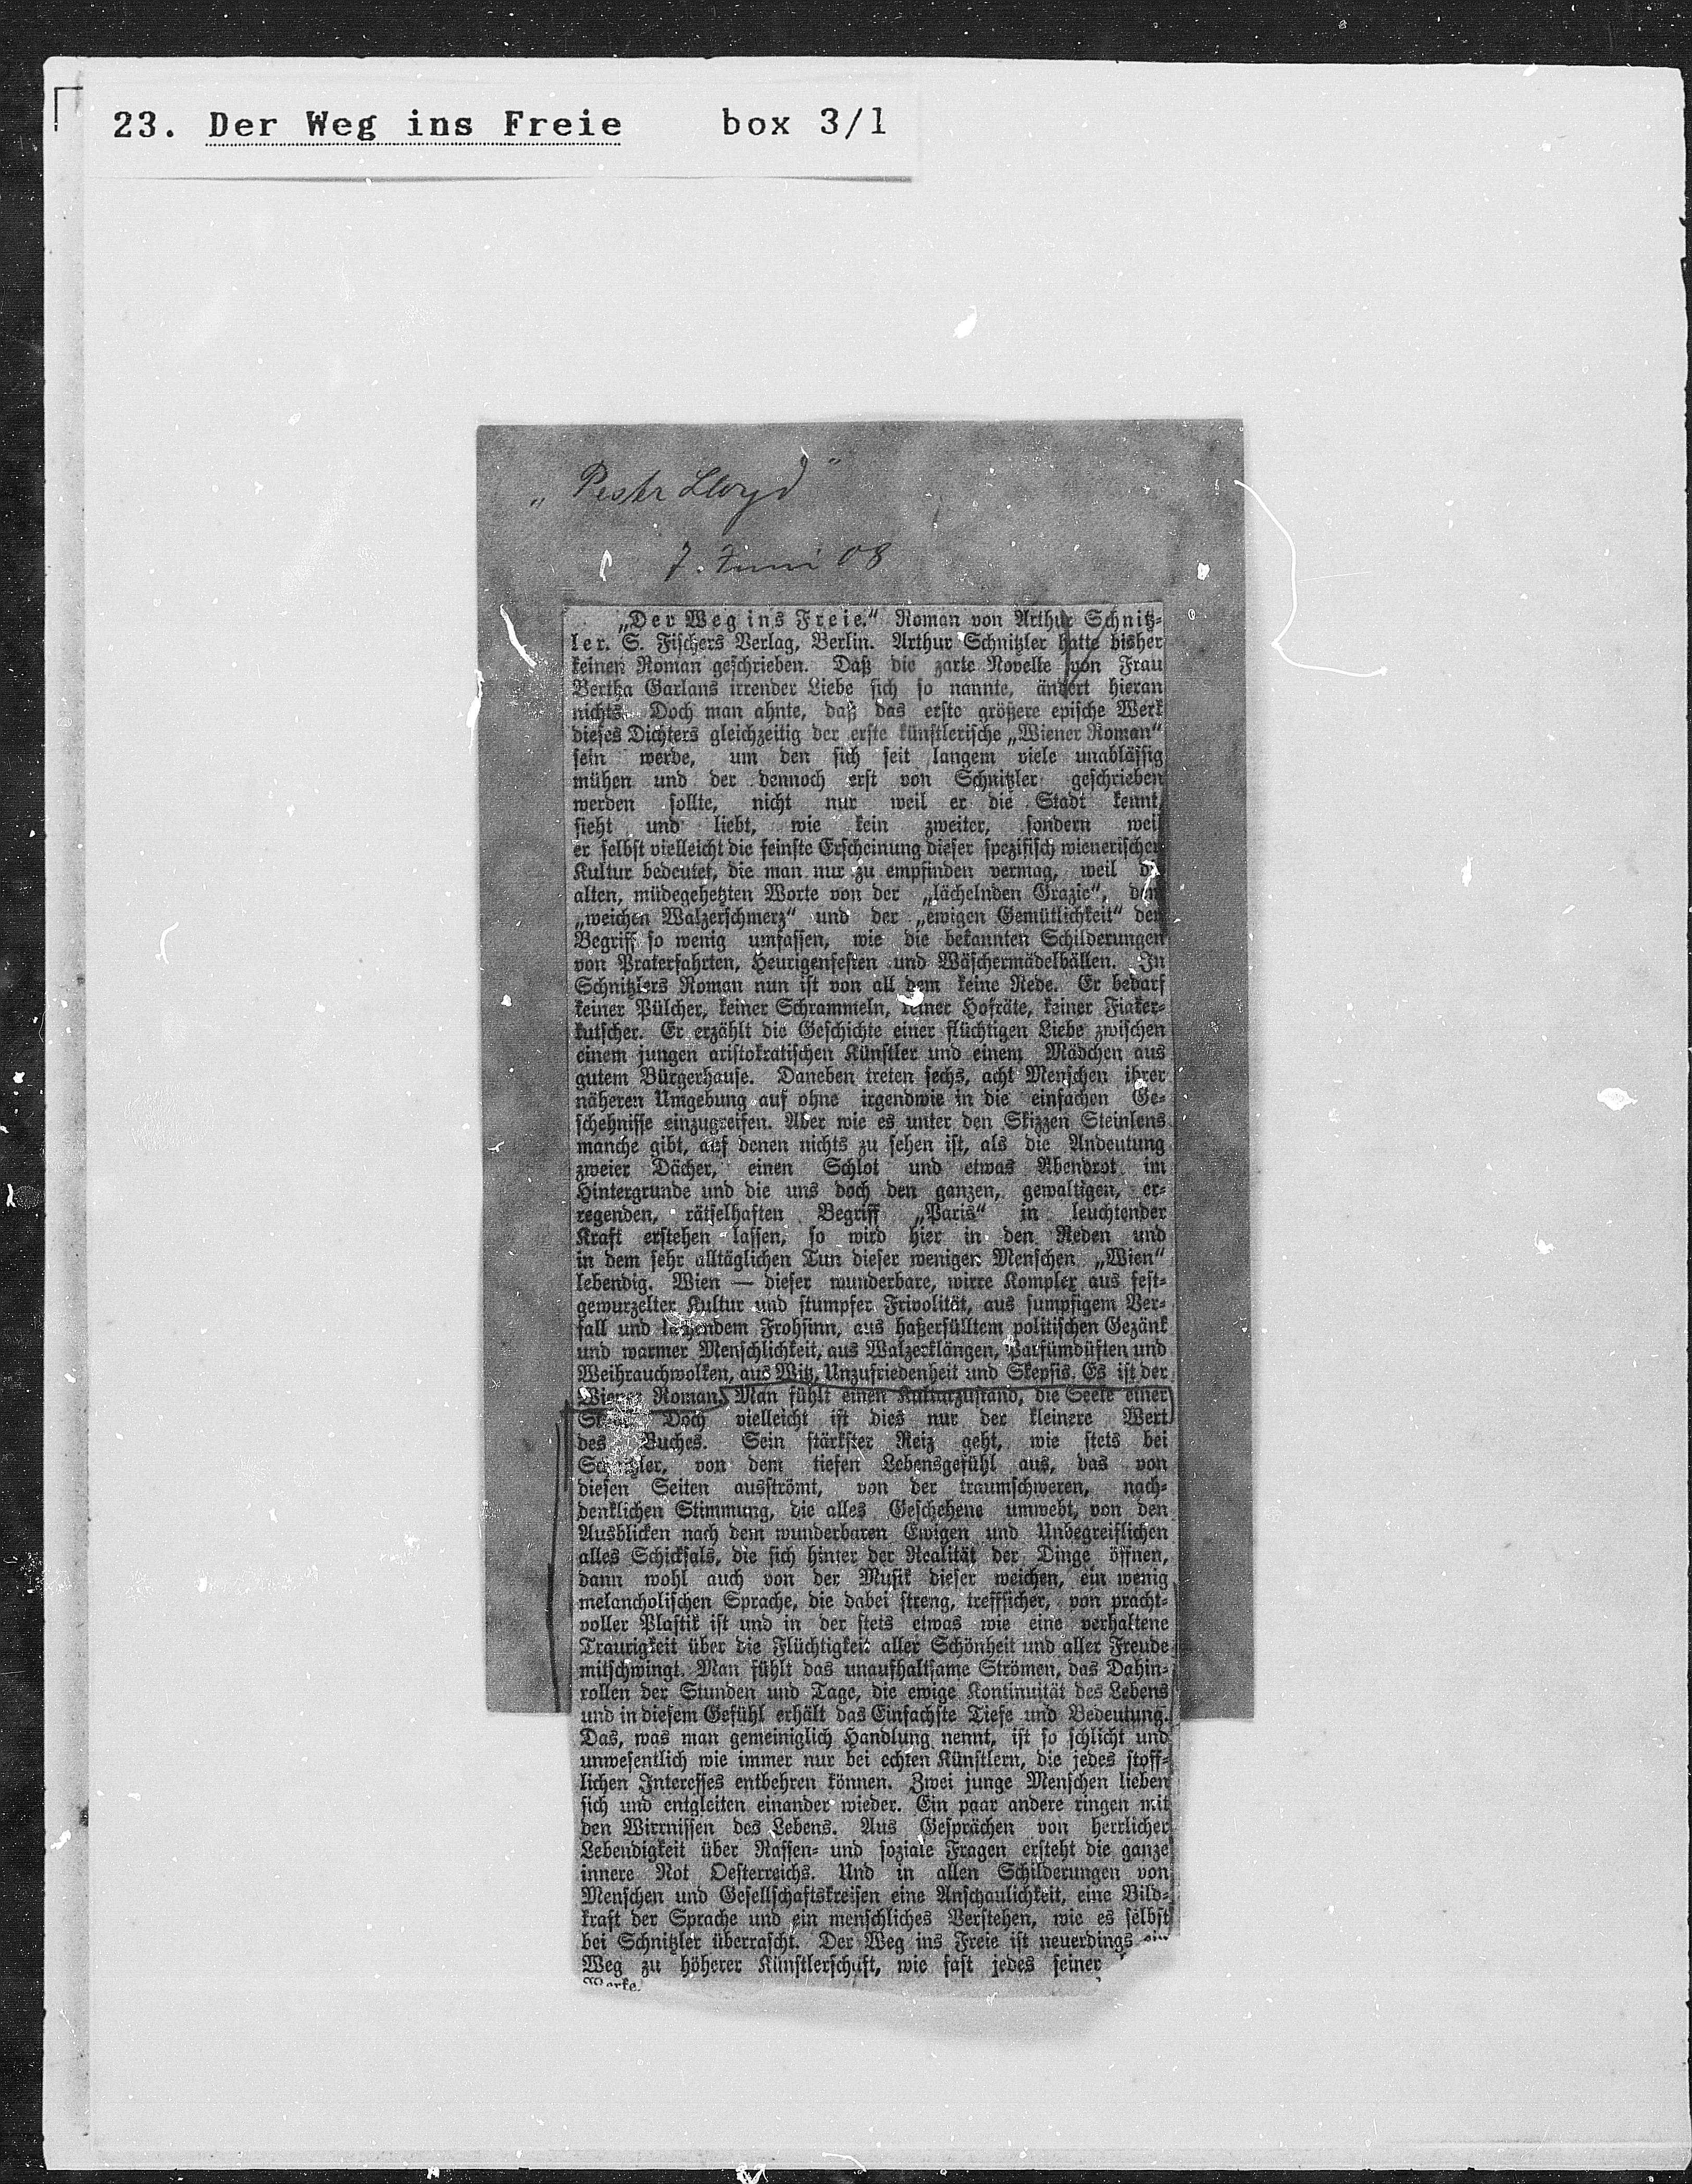 23. Der Weg ins Freie box 3/1
„Pester Lloyd"
7. Juni 08
„Der Weg ins Freie.“ Roman von Arthur Schnitz-
ler. S. Fischers Verlag, Berlin. Arthur Schnitzler hatte bisher
keinen Roman geschrieben. Daß die zarte Novelle von Frau
Bertha Garlans irrender Liebe sich so nannte, ändert hieran
nichts. Doch man ahnte, daß das erste größere epische Werk
dieses Dichters gleichzeitig der erste künstlerische „Wiener Roman“
sein werde, um den sich seit langem viele unablässig
mühen und der dennoch erst von Schnitzler geschrieben
werden sollte, nicht nur weil er die Stadt kennt,
sieht und liebt, wie kein zweiter, sondern weil
er selbst vielleicht die feinste Erscheinung dieser spezifisch wienerischen
Kultur bedeutet, die man nur zu empfinden vermag, weil die
alten, müdegehetzten Worte von der „lächelnden Grazie“, dem
„weichen Walzerschmerz“ und der „ewigen Gemütlichkeit“ den
Begriff so wenig umfassen, wie die bekannten Schilderungen
von Praterfahrten, Heurigenfesten und Wäschermädelbällen. In
Schnitzlers Roman nun ist von all dem keine Rede. Er bedarf
keiner Pülcher, keiner Schrammeln, keiner Hofräte, keiner Fiaker-
kutscher. Er erzählt die Geschichte einer flüchtigen Liebe zwischen
einem jungen aristokratischen Künstler und einem Mädchen aus
gutem Bürgerhause. Daneben treten sechs, acht Menschen ihrer
näheren Umgebung auf ohne irgendwie in die einfachen Ge-
schehnisse einzugreifen. Aber wie es unter den Skizzen Steinlens
manche gibt, auf denen nichts zu sehen ist, als die Andeutung
zweier Dächer, einen Schlot und etwas Abendrot im
Hintergrunde und die uns doch den ganzen, gewaltigen, er-
regenden, rätselhaften Begriff „Paris“ in leuchtender
Kraft erstehen lassen, so wird hier in den Reden und
in dem sehr alltäglichen Tun dieser weniger Menschen „Wien“
lebendig. Wien — dieser wunderbare, wirre Komplex aus fest-
gewurzelter Kultur und stumpfer Frivolität, aus sumpfigem Ver-
fall und lachendem Frohsinn, aus haßerfülltem politischen Gezänk
und warmer Menschlichkeit, aus Walzerklängen, Parfümdüften und
Weihrauchwolken, aus Witz, Unzufriedenheit und Skepsis. Es ist der
Wiener Roman. Man fühlt einen Kulturzustand, die Seele einer
Doch vielleicht ist dies nur der kleinere Wert
des Buches. Sein stärkster Reiz geht, wie stets bei
Schnitzler, von dem tiefen Lebensgefühl aus, das von
diesen Seiten ausströmt, von der traumschweren, nach-
denklichen Stimmung, die alles Geschehene umwebt, von den
Ausblicken nach dem wunderbaren Ewigen und Unbegreiflichen
alles Schicksals, die sich hinter der Realität der Dinge öffnen,
dann wohl auch von der Musik dieser weichen, ein wenig
melancholischen Sprache, die dabei streng, treffsicher, von pracht-
voller Plastik ist und in der stets etwas wie eine verhaltene
Traurigkeit über die Flüchtigkeit aller Schönheit und aller Freude
mitschwingt. Man fühlt das unaufhaltsame Strömen, das Dahin-
rollen der Stunden und Tage, die ewige Kontinuität des Lebens
und in diesem Gefühl erhält das Einfachste Tiefe und Bedeutung.
Das, was man gemeiniglich Handlung nennt, ist so schlicht und
unwesentlich wie immer nur bei echten Künstlern, die jedes stoff-
lichen Interesses entbehren können. Zwei junge Menschen lieben
sich und entgleiten einander wieder. Ein paar andere ringen mit
den Wirrnissen des Lebens. Aus Gesprächen von herrlicher
Lebendigkeit über Rassen- und soziale Fragen ersteht die ganze
innere Not Oesterreichs. Und in allen Schilderungen von
Menschen und Gesellschaftskreisen eine Anschaulichkeit, eine Bild-
kraft der Sprache und ein menschliches Verstehen, wie es selbst
bei Schnitzler überrascht. Der Weg ins Freie ist neuerdings ein
Weg zu höherer Künstlerschaft, wie fast jedes seiner
Werke.